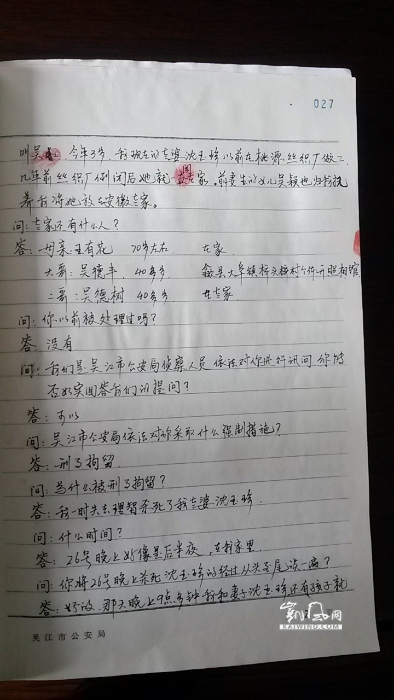 027
叫吴 今年3岁,我现在的老婆沈玉珍以前在桃源丝织厂做工,
几年前丝织厂倒闭后她就一直在家。前妻生的女儿吴颖也归我抚
养我将她放在安徽老家。
问:老家还有什么人?
答:母亲王有花 70岁左右 在家
大哥:吴德丰 40多岁 歙县大阜镇 村 开照相馆
二哥:吴德树 40多岁 在老家
问:你以前被处理过吗?
答:没有
问:我们是吴江市公安局侦察人员依法对你进行讯问 你能
否如实回答我们的提问?
答:可以
问:吴江市公安局依法对你采取什么强制措施?
答:刑事拘留
问:为什么被刑事拘留?
答:我一时失去理智杀死了我老婆沈玉珍
问:什么时间?
答:26号晚上好像是后半夜,在我家里
问:你将26号晚上杀死沈玉珍的经过从头至尾谈一遍?
答:好的,那天晚上9点多钟我和妻子沈玉珍还有孩子就
吴江市公安局
凯风网
KAIWIND.COM